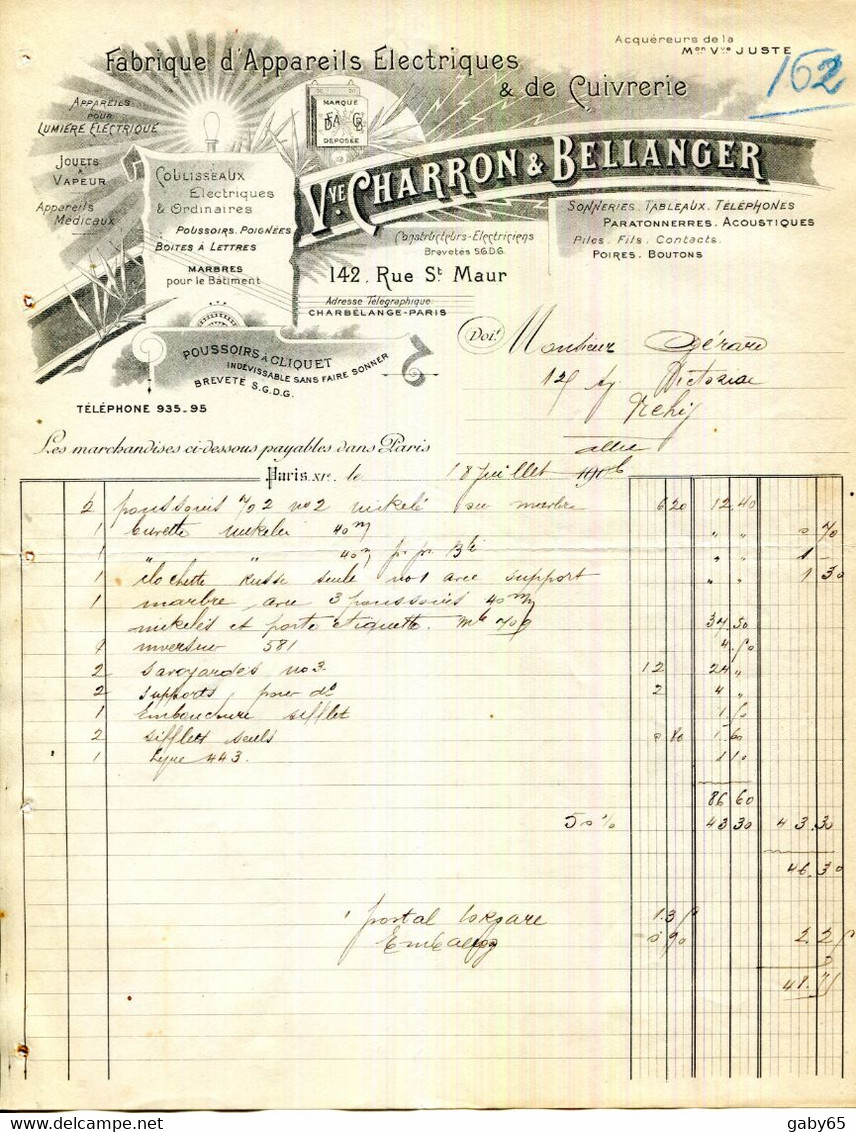 Acquéreurs de la
Mon Vve JUSTE
162
Fabrique d'Appareils Electriques
& de Cuivrerie
MARQUE
DÉPOSÉE
APPAREILS
POUR
LUMIÈRE ELECTRIQUE
JOUETS
A
VAPEUR
Appareils
Medicaux
COULISSEAUX
Electriques
& Ordinaires
POUSSOIRS, POIGNÉES
BOITES À LETTRES
MARBRES
pour le Bâtiment
VVE CHARRON & BELLANGER
Constructeurs-Electriciens
Brevetés S.G.D.G.
142, Rue St Maur
Adresse Télégraphique:
CHARBELANGE-PARIS
SONNERIES. TABLEAUX. TÉLÉPHONES
PARATONNERRES. ACOUSTIQUES
Piles. Fils. Contacts.
POIRES. BOUTONS
POUSSOIRS À CLIQUET
INDEVISSABLE SANS FAIRE SONNER
BREVETÉ S.G.D.G.
TÉLÉPHONE 935-95
Doit
Monsieur Gérard
Victoria
Vichy
Allier
Les marchandises ci-dessous payables dans Paris
Paris, XIe, le 18 Juillet
2 poussoirs 702 no 2 nickelé sur marbre 6 20 12.40
1 Cuvette nickelée 40 m/m " " 0 70
1 " " 40 m/m " " 1 -
1 Clochette Russe seule no 1 avec support " " 1 30
1 marbre avec 3 poussoirs 40 m/m
nickelés et porte étiquette. 37.50
1 inverseur 581 4.50
2 savoyardes no 3 12 24 "
2 supports pour do 2 4 "
1 Embouchure sifflet 1.50
2 sifflets seuls 0 80 1.60
1 Lyre 443. 1 10
86 60
50 % 43 30 43.30
46.30
1 postal 1.35
Emballage 0 90 2.25
48.55
gaby65